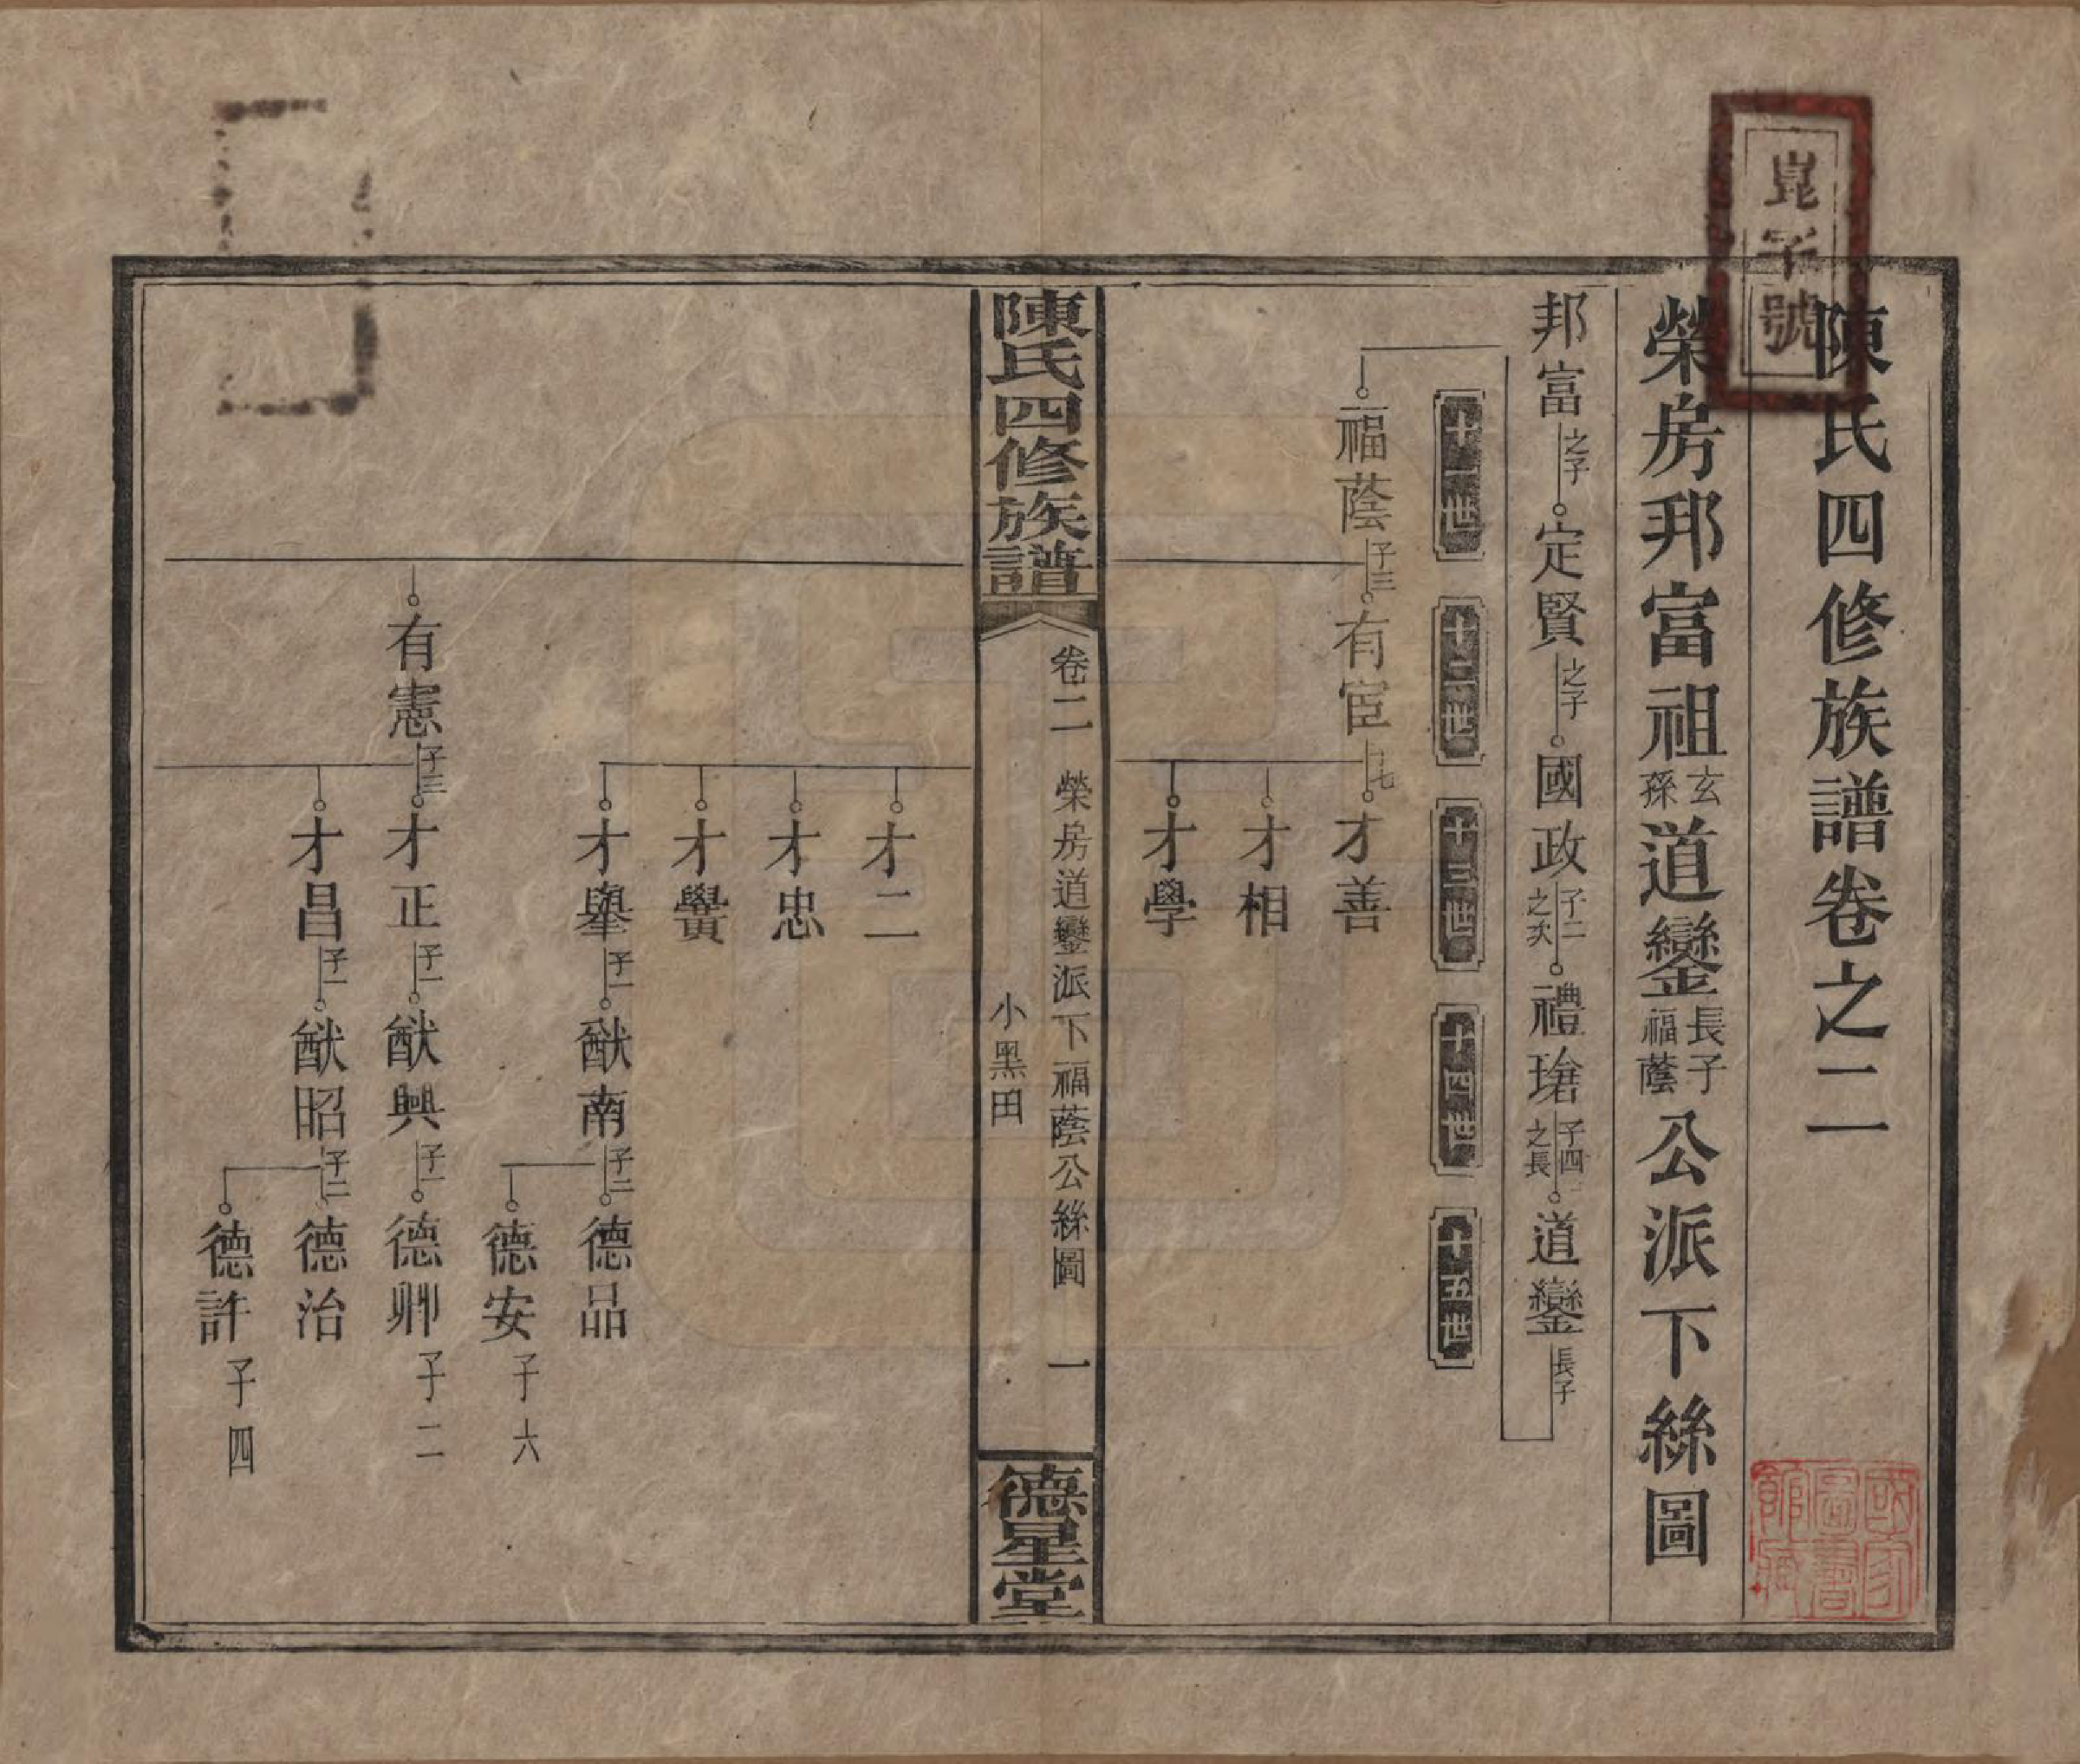 崑字號
陳氏四修族譜卷之二
榮房邦富祖玄孫道鑾長子福蔭公派下絲圖
邦富之子定賢之子國政子二之次禮瑃子四之長道鑾長子
十一世
十二世
十三世
十四世
十五世
福蔭子三有宦子七才善
才相
才學
陳氏四修族譜
卷二 榮房道鑾派下福蔭公絲圖 一
小黑田
德星堂
才二
才忠
才黌
才舉子一猷南子二德品
德安子六
有憲子三才正子一猷興子一德卿子二
才昌子一猷昭子二德治
德許子四
國家圖書館藏